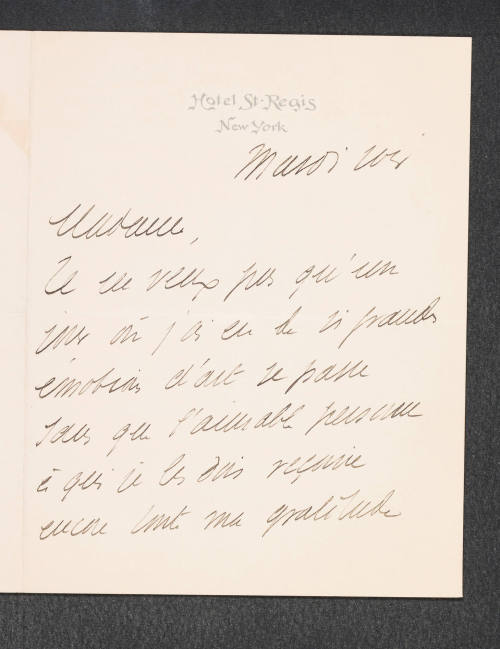 Hotel St. Regis
New York
Mardi soir
Madame,
Je ne veux pas qu'un
jour où j'ai eu de si grandes
émotions d'art se passe
sans que l'aimable personne
à qui je les dois reçoive
encore toute ma gratitude